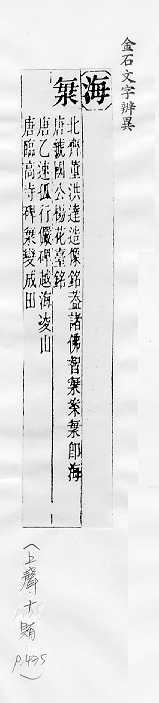 金石文字辨異
海
䍏
北齊董洪達造像銘蓋諸佛智䍏案䍏即海
唐虢國公楊花臺銘
唐乙速孤行儼碑越海凌山
唐臨高寺碑䍏變成田
(上聲十賄
P.435)